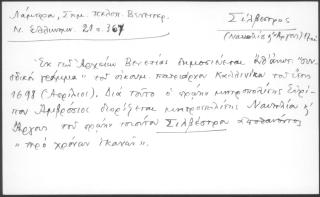 Λάμπρου, Σημ. πελοπ. Βενετοκρ.
Ν. Ελληνομν. 21 σ. 367
Σίλβεστρος
(Ναυπλίου κ' Άργους)
Εκ των Αρχείων Βενετίας δημοσιεύεται "συνο
δικόν γράμμα" του οικουμ. πατριάρχου Καλλινίκου του έτους
1698 (Απρίλιος). Διά τούτο ο πρώην μητροπολίτης Ευρί
που Αμβρόσιος διορίζεται μητροπολίτης Ναυπλίου κ'
Άργους του πρώην τούτου Σιλβέστρου αποθανόντος
"προ χρόνων ικανών".